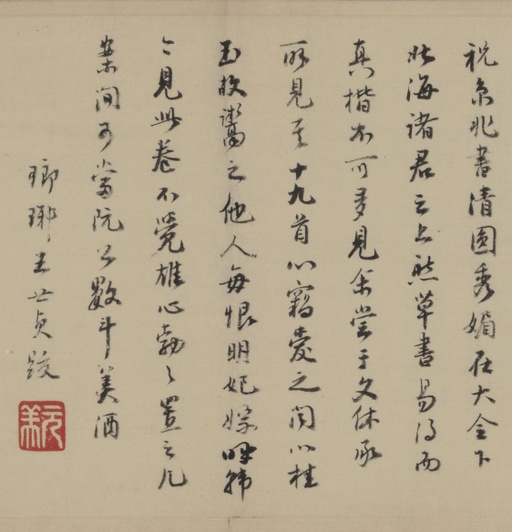 祝京兆書清圓秀媚在大令下
北海諸君之上然草書易得而
真楷不可多見余嘗于文休承
所見其十九首心竊愛之間以桂
玉故鬻之他人每恨明妃嫁呼韓
今見此卷不覺雄心勃〻置之几
案間可當阮公數斗美酒
琅琊王世貞跋
元美